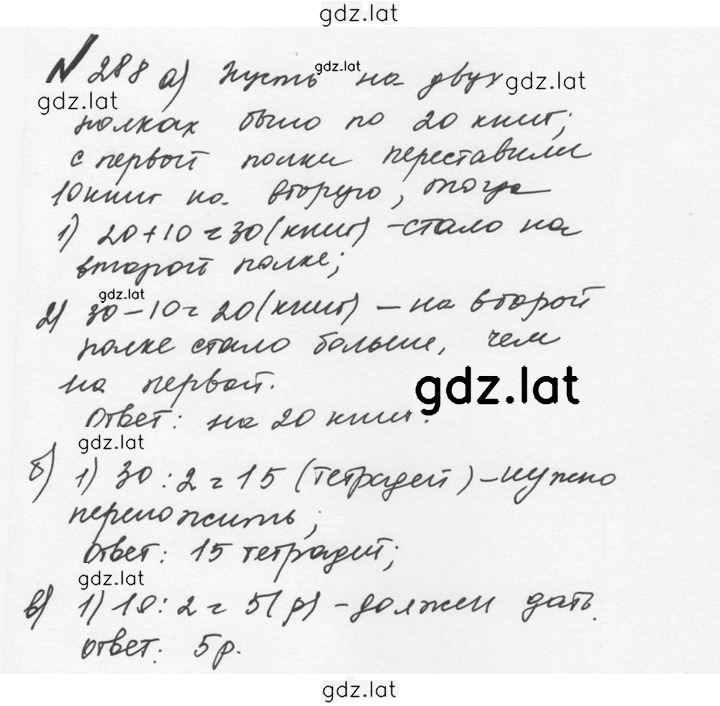 gdz.lat
№ 288 а) Пусть gdz.lat на двух gdz.lat
gdz.lat
полках было по 20 книг;
с первой полки переставили
10 книг на вторую, тогда
1) 20+10=30 (книг) - стало на
второй полке;
gdz.lat
2) 30-10=20 (книг) - на второй
полке стало больше, чем
на первой. gdz.lat
Ответ: на 20 книг.
gdz.lat
б) 1) 30:2=15 (тетрадей) - нужно
переложить;
Ответ: 15 тетрадей;
gdz.lat
в) 1) 10:2=5 (р) - должен дать.
Ответ: 5 р.
gdz.lat